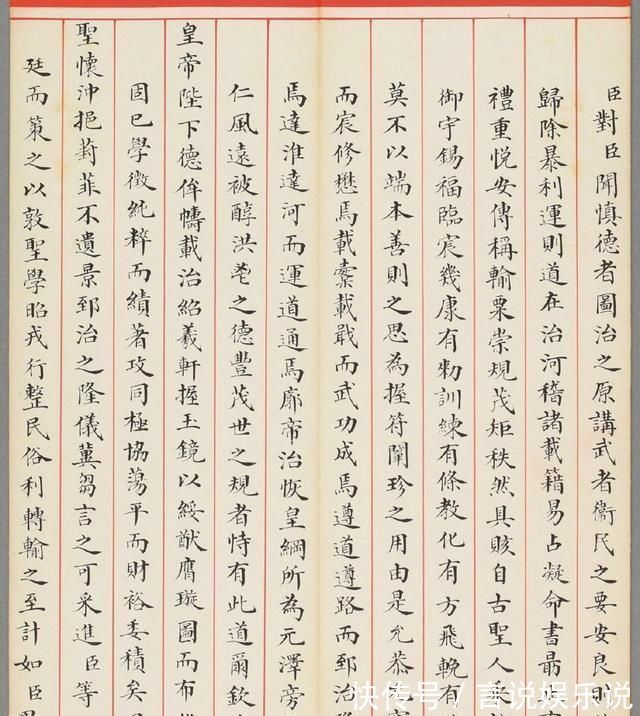 臣對臣聞慎德者圖治之原講武者衞民之要安良
歸除暴利運則道在治河稽諸載籍易占凝命書朂
禮重悅安傳稱輸粟崇規茂矩秩然具賅自古聖人乘
御宇錫福臨宸幾康有勑訓練有條教化有方飛輓有
莫不以端本善則之思為握符闡珍之用由是允恭克
而宸修懋焉載櫜載戢而武功成焉遵道遵路而郅治
焉達淮達河而運道通焉廓帝治恢皇綱所為元澤旁
仁風遠被醇洪鬯之德豐茂世之規者恃有此道爾欽
皇帝陛下德侔幬載治紹羲軒握玉鏡以綏猷膺璇圖而布
固已學徵純粹而績著攻同極協蕩平而財裕委積矣
聖懷沖挹葑菲不遺景郅治之隆儀冀芻言之可采進臣等
廷而策之以敦聖學昭戎行整民俗利轉輸之至計如臣
快传号/言说娱乐说